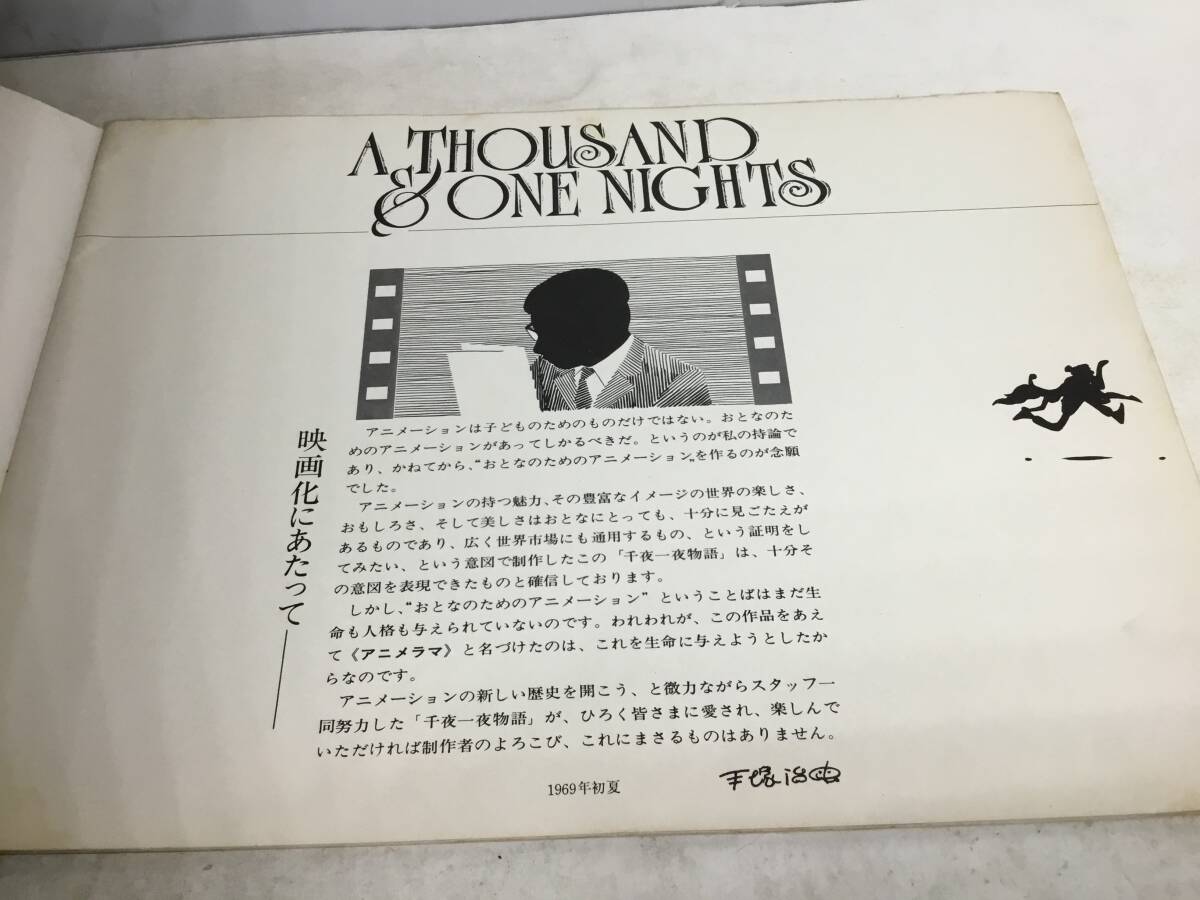 A THOUSAND
& ONE NIGHTS
映画化にあたって――
アニメーションは子どものためのものだけではない。おとなのた
めのアニメーションがあってしかるべきだ。というのが私の持論で
あり、かねてから、“おとなのためのアニメーション〟を作るのが念願
でした。
アニメーションの持つ魅力、その豊富なイメージの世界の楽しさ、
おもしろさ、そして美しさはおとなにとっても、十分に見ごたえが
あるものであり、広く世界市場にも通用するもの、という証明をし
てみたい、という意図で制作したこの「千夜一夜物語」は、十分そ
の意図を表現できたものと確信しております。
しかし、“おとなのためのアニメーション” ということばはまだ生
命も人格も与えられていないのです。われわれが、この作品をあえ
て《アニメラマ》と名づけたのは、これを生命に与えようとしたか
らなのです。
アニメーションの新しい歴史を開こう、と微力ながらスタッフ一
同努力した「千夜一夜物語」が、ひろく皆さまに愛され、楽しんで
いただければ制作者のよろこび、これにまさるものはありません。
1969年初夏
手塚治虫